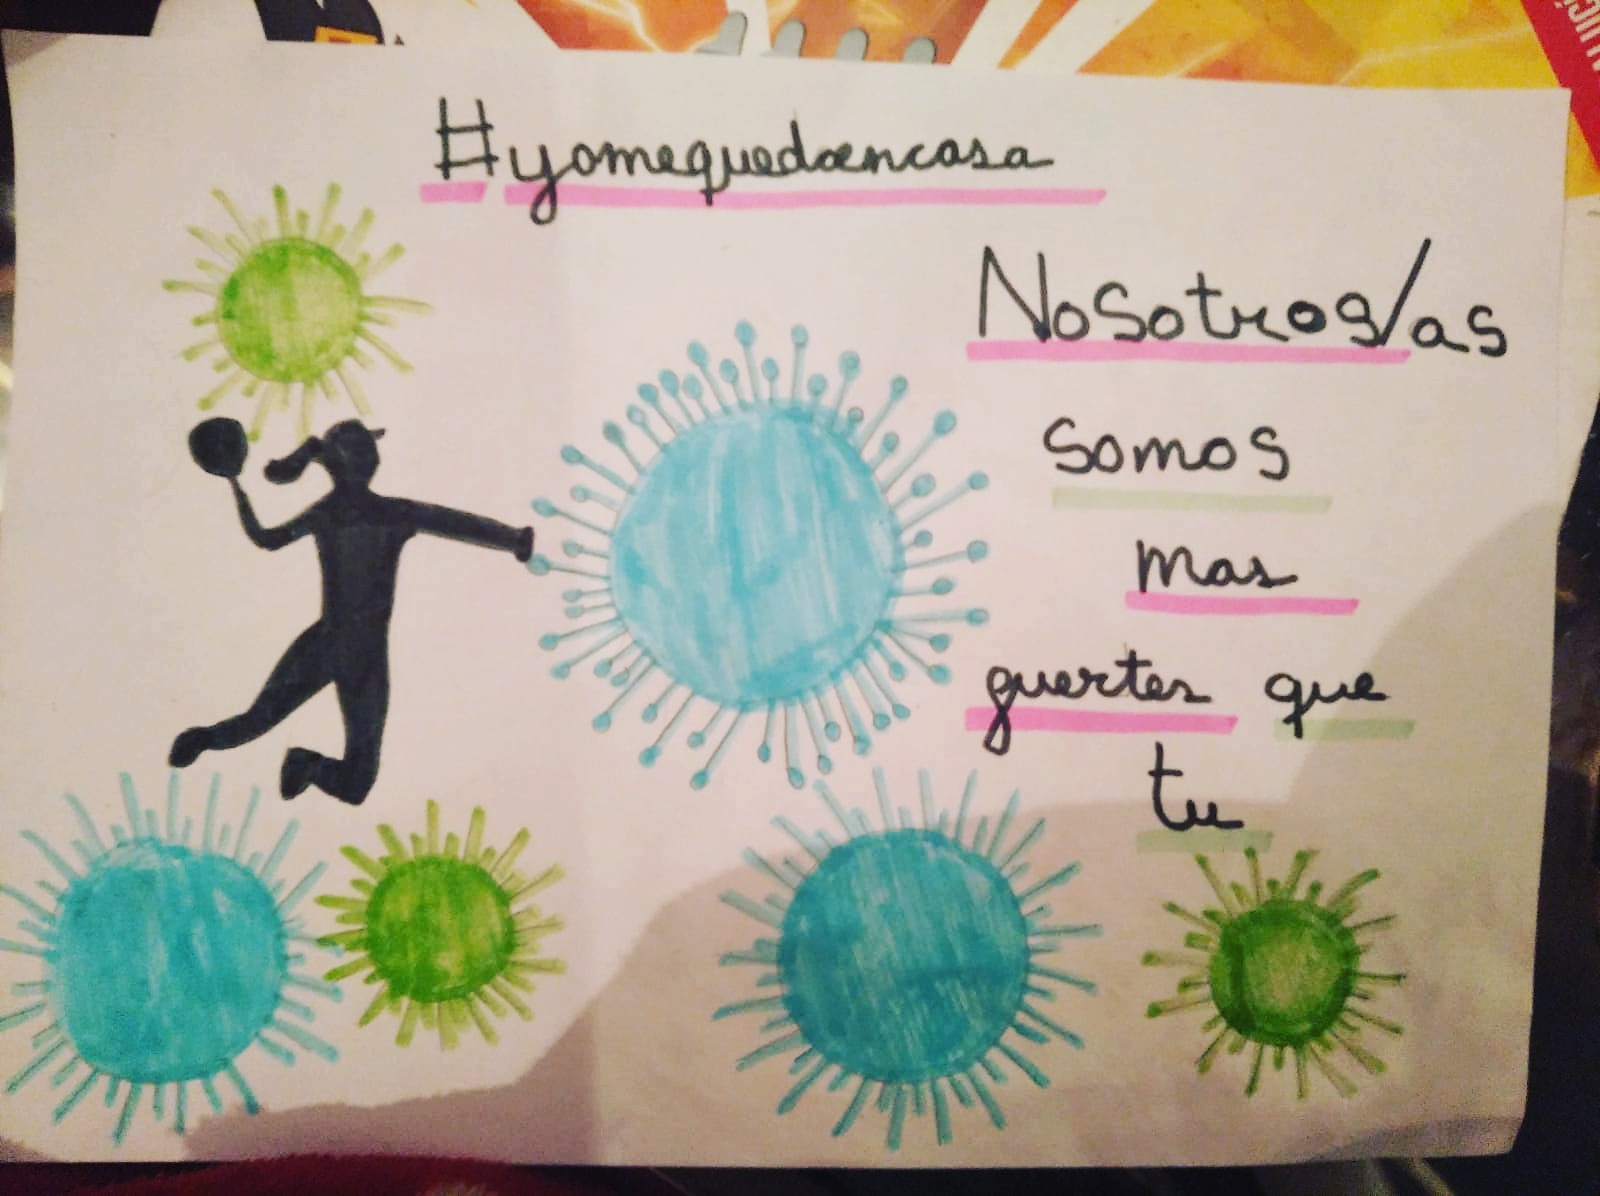 #yomequedoencasa
Nosotros/as
somos
mas
guertes que
tu